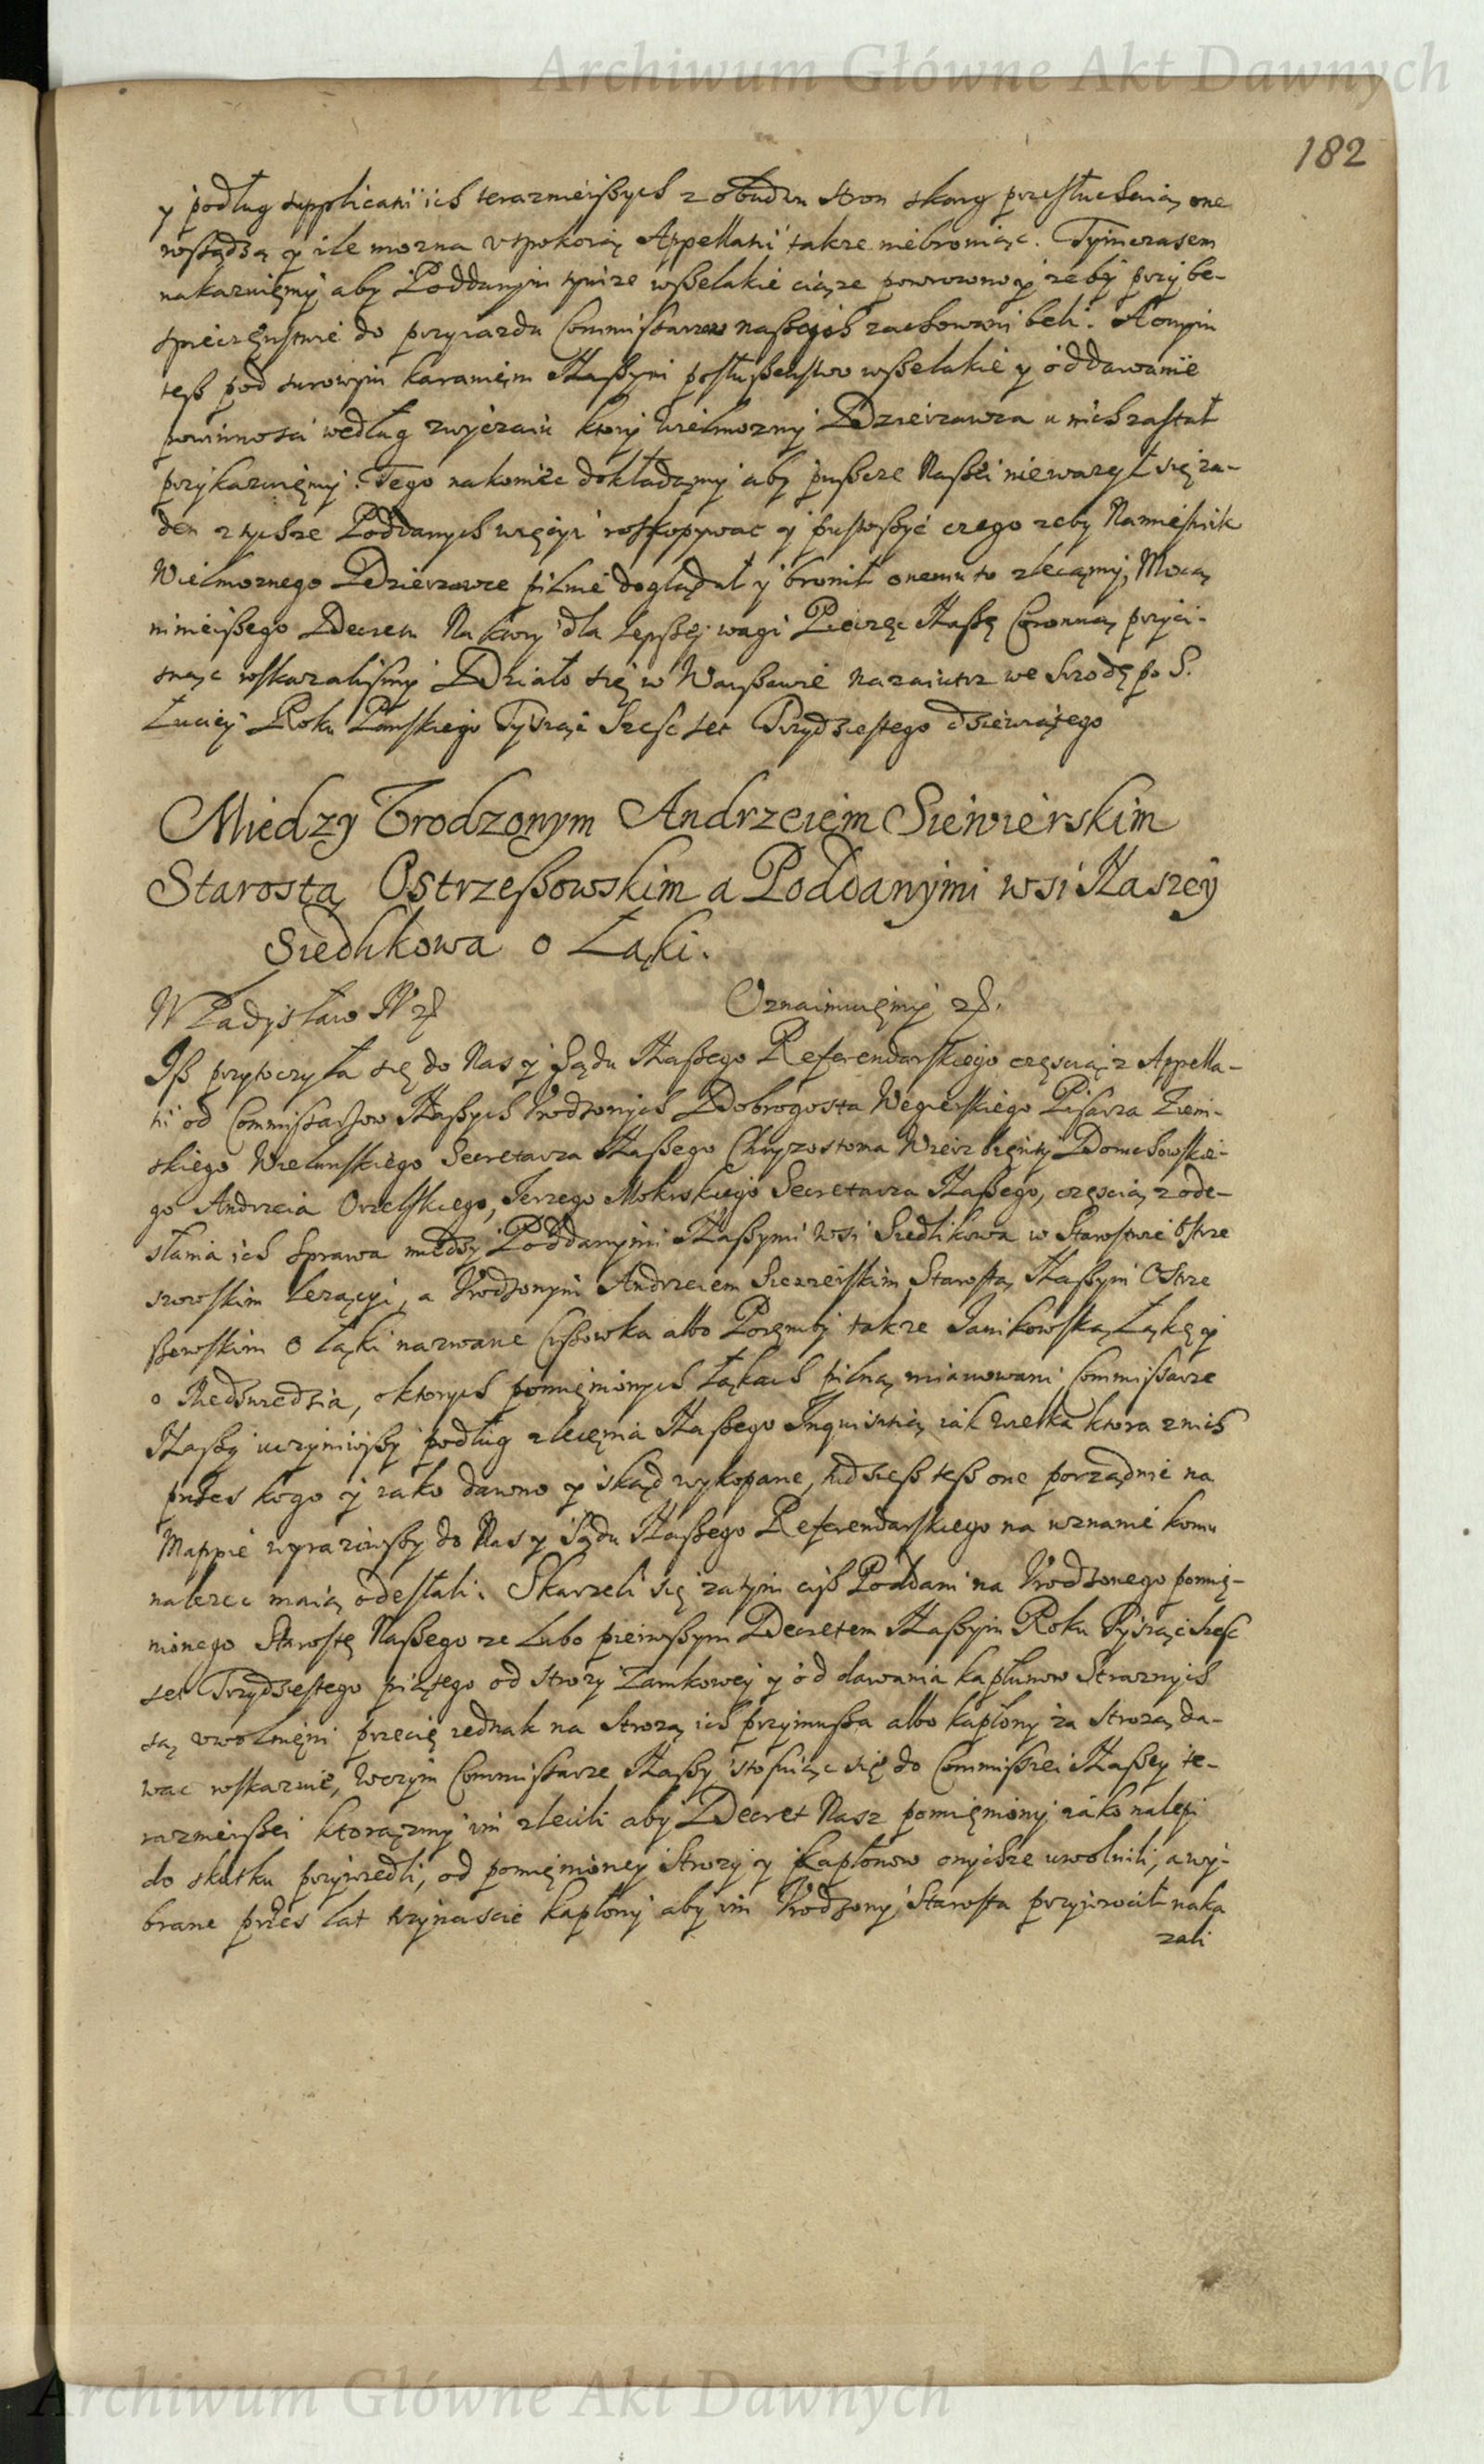 Archiwum Główne Akt Dawnych
182
y podług supplicatii ich teraznieißych z obudwu stron skarg przesłuchaią, one
rosßądzą y ile mozna vspokoią Appellatii takze niebroniąc. Tymczasem
nakazuięmy aby Poddanym tymze wßelakie ciąze powrocono y zeby przy be-
spieczęnstwie do przyiazdu Commissarzow naßych zachowani beli. A onym
teß pod surowym karanięm Naßym posłußenstwo wßelakie y oddawanie
powinnosci według zwyczaiu ktory Wielmozny Dzierzawca u nich zastał
przykazuięmy. Tego nakoniec dokładamy aby pußcze Naßei niewazył się ża-
den z tychze Poddanych więcyi roskopywac y pustoßyć czego zeby Namiesnik
Wielmoznego Dzierzawce pilnie doglądał y bronił onemu to zlecamy, Mocą
ninieißego Decretu Na ktory dla lepßej wagi Pieczęc Naßę Coronną przyci-
snąc roskazalismy Działo się w Warßawie nazaiutrz we Srodę po S.
Łuciey Roku Panskiego Tysiąc Szesc set Trzydziestego dziewiątego
Miedzy Vrodzonym Andrzeiem Siewierskim
Starostą Ostrzeßowskim a Poddanymi wsi Naszey
Siedlikowa o Łąki.
Władysław IV z
Oznaimuięmy z.
Iß przytoczyła się do Nas y Sądu Naßego Referendarskiego częscią z Appella-
tii od Commissarzow Naßych Vrodzonych Dobrogosta Węgierskiego Pisarza Ziem-
skiego Wielunskiego Secretarza Naßego Chryzostoma Wierzbięnty Domchowskie-
go Andrzeia Orzelskiego, Jerzego Mokrskiego Secretarza Naßego, częscią z ode-
słania ich Sprawa miedzy Poddanymi Naßymi Wsi Siedlikowa w Starostwie Ostrze
szowskim lezącyi, a Vrodzonym Andrzeiem Siewierskim Starostą Naßym Ostrze
ßowskim o Łąki nazwane Cißowka albo Poręmby takze Janikowską Łąkę y
o Niedzwiedzia, o ktorych pomięnionych Łąkach pilną mianowani Commissarze
Naßy uczyniwßy podług zlecęnia Naßego Inquisitią iak wielka ktora z nich
przes kogo y iako dawno y skąd wykopane, tudzieß teß one porządnie na
Mappie wyraziwßy do Nas y Sądu Naßego Referendarskiego na uznanie komu
nalezec maią odesłali. Skarzeli się zatym ciß Poddani na Vrodzonego pomię-
nionego Starostę Naßego ze lubo pierwßym Decretem Naßym Roku Tysiąc Szesc
set Trzydziestego piątego od strozy Zamkowey y od dawania kapłunow Straznych
są vwolnięni przecię iednak na Strozą ich przymußa albo kapłony za Strozą da-
wac roskazuie, w czym Commissarze Naßy stosuiąc się do Commissiei Naßey te-
raznieißei ktorąsmy im zlecili aby Decret Nasz pomięniony iako nalepi
do skutku przywiedli, od pomięnioney Strozy y Kapłonow onychze uwolnili, a wy-
brane przes lat trzynascie kapłony aby im Vrodzony Starosta przywrocił naka
zali
Archiwum Główne Akt Dawnych